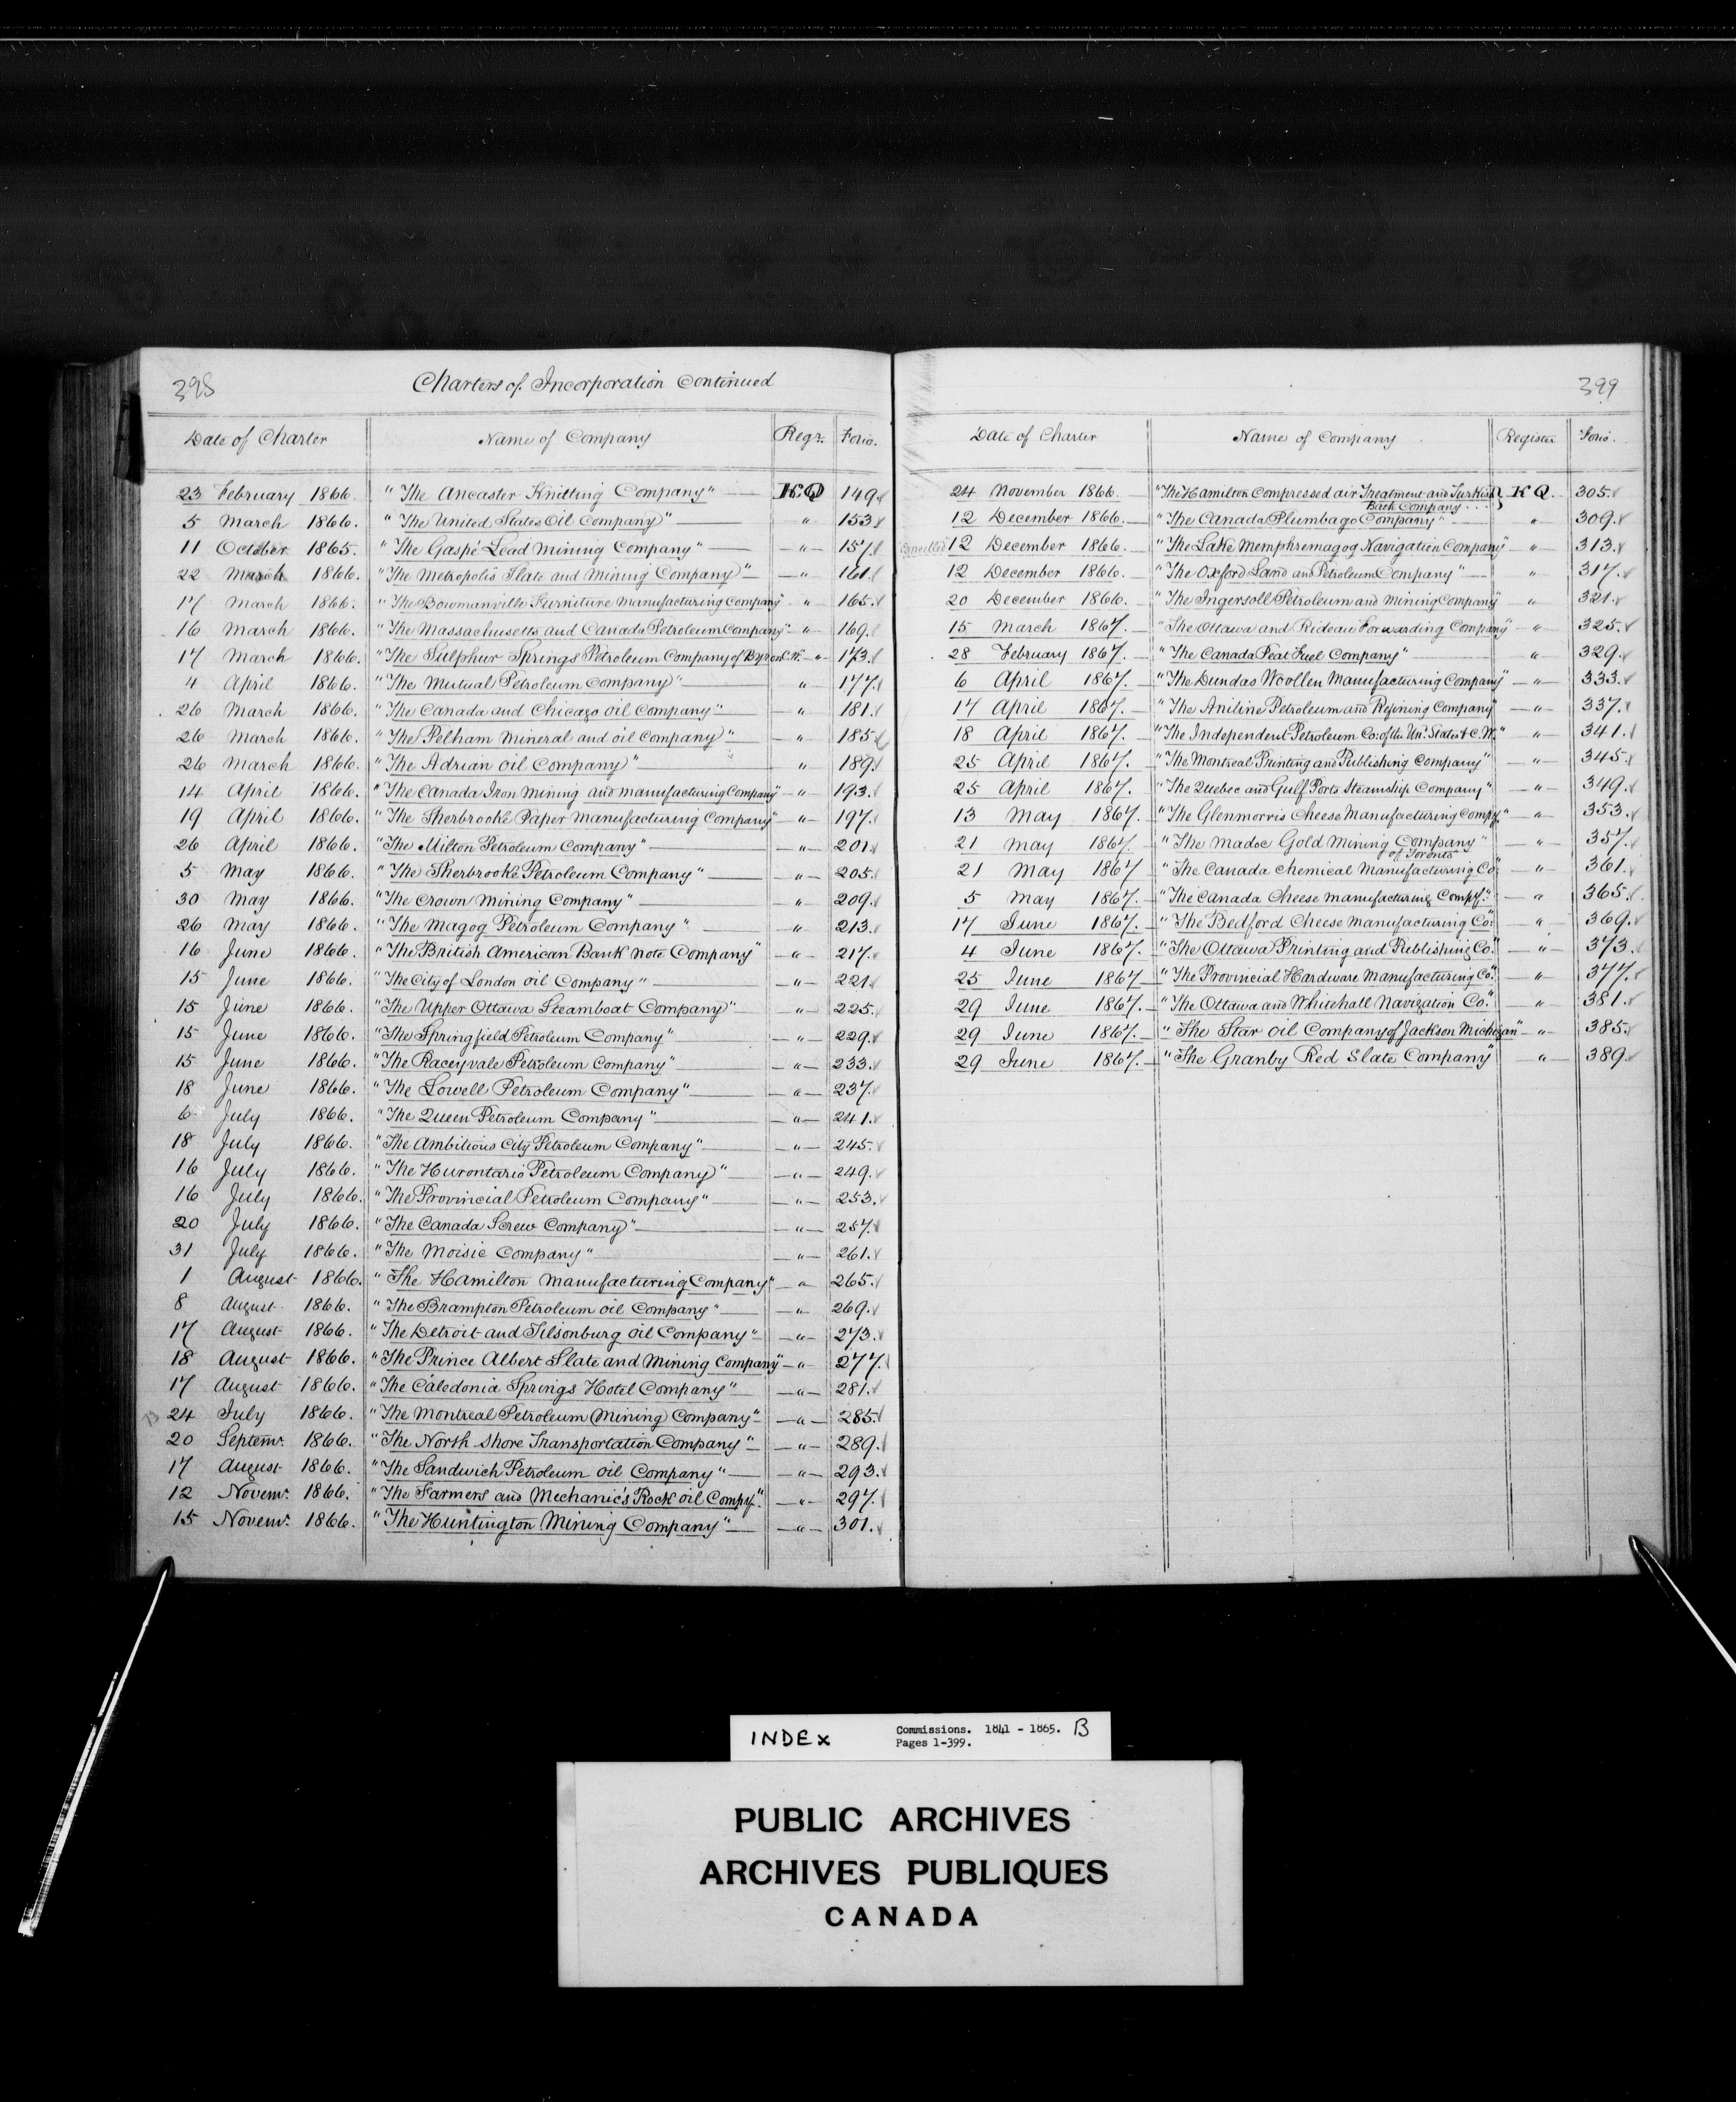 398
Charters of Incorporation Continued
Date of Charter Name of Company Regr. Folio.
23 February 1866. "The Ancaster Knitting Company" KQ 149.
5 March 1866. "The United States Oil Company" " 153
11 October 1865. "The Gaspé Lead Mining Company" " 157.
22 March 1866. "The Metropolis Slate and Mining Company" " 161.
17 March 1866. "The Bowmanville Furniture Manufacturing Company" " 165.
16 March 1866. "The Massachusetts and Canada Petroleum Company" " 169.
17 March 1866. "The Sulphur Springs Petroleum Company of Byron C.W. " 173.
4 April 1866. "The Mutual Petroleum Company" " 177.
26 March 1866. "The Canada and Chicago Oil Company" " 181.
26 March 1866. "The Pelham Mineral and oil Company" " 185
26 March 1866. "The Adrian Oil Company" " 189.
14 April 1866. "The Canada Iron Mining and Manufacturing Company" " 193.
19 April 1866. "The Sherbrooke Paper Manufacturing Company" " 197.
26 April 1866. "The Milton Petroleum Company" " 201.
5 May 1866. "The Sherbrooke Petroleum Company" " 205.
30 May 1866. "The Crown Mining Company" " 209.
26 May 1866. "The Magog Petroleum Company" " 213.
16 June 1866. "The British American Bank Note Company" " 217.
15 June 1866. "The City of London Oil Company" " 221.
15 June 1866. "The Upper Ottawa Steamboat Company" " 225.
15 June 1866. "The Springfield Petroleum Company" " 229.
15 June 1866. "The Raceyvale Petroleum Company" " 233.
18 June 1866. "The Lowell Petroleum Company" " 237.
6 July 1866. "The Queen Petroleum Company" " 241.
18 July 1866. "The Ambitious City Petroleum Company" " 245.
16 July 1866. "The Hurontario Petroleum Company" " 249.
16 July 1866. "The Provincial Petroleum Company" " 253.
20 July 1866. "The Canada Screw Company" " 257.
31 July 1866. "The Moisie Company" " 261.
1 August 1866. "The Hamilton Manufacturing Company" " 265.
8 August 1866. "The Brampton Petroleum Oil Company" " 269.
17 August 1866. "The Detroit and Tilsonburg Oil Company" " 273.
18 August 1866. "The Prince Albert Slate and Mining Company" " 277.
17 August 1866. "The Caledonia Springs Hotel Company" " 281.
24 July 1866. "The Montreal Petroleum (Mining) Company" " 285.
20 Septemr. 1866. "The North Shore Transportation Company" " 289.
17 August 1866. "The Sandwich Petroleum Oil Company" " 293.
12 Novemr. 1866. "The Farmers and Mechanic's Rock Oil Compy." " 297.
15 Novemr. 1866. "The Huntington Mining Company" " 301.
399
Date of Charter Name of Company Register Folio.
24 November 1866. "The Hamilton Compressed air Treatment and Turkish KQ. 305.
Bath Company
12 December 1866. "The Canada Plumbago Company" " 309.
Cancelled 12 December 1866. "The Lake Memphremagog Navigation Company" " 313.
12 December 1866. "The Oxford Land and Petroleum Company" " 317.
20 December 1866. "The Ingersoll Petroleum and Mining Company" " 321.
15 March 1867. "The Ottawa and Rideau Forwarding Company" " 325.
28 February 1867. "The Canada Peat Fuel Company" " 329.
6 April 1867. "The Dundas Woollen Manufacturing Company" " 333.
17 April 1867. "The Aniline Petroleum and Refining Company" " 337.
18 April 1867. "The Independent Petroleum Co: of the Un: States & C.W." " 341.
25 April 1867. "The Montreal Printing and Publishing Company" " 345.
25 April 1867. "The Quebec and Gulf Ports Steamship Company" " 349.
13 May 1867. "The Glenmorris Cheese Manufacturing Compy." " 353.
21 May 1867. "The Madoc Gold Mining Company" " 357.
of Toronto
21 May 1867 "The Canada Chemical Manufacturing Co" " 361.
5 May 1867. "The Canada Cheese Manufacturing Compy." " 365.
17 June 1867. "The Bedford Cheese Manufacturing Co." " 369.
4 June 1867. "The Ottawa Printing and Publishing Co." " 373.
25 June 1867 "The Provincial Hardware Manufacturing Co." " 377.
29 June 1867. "The Ottawa and Whitehall Navigation Co." " 381.
29 June 1867. "The Star Oil Company of Jackson Michigan" " 385.
29 June 1867. "The Granby Red Slate Company" " 389
INDEX Commissions. 1841 - 1865. B
Pages 1-399.
PUBLIC ARCHIVES
ARCHIVES PUBLIQUES
CANADA